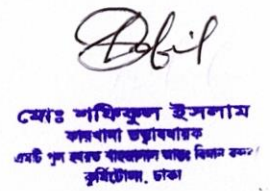 মোঃ শফিকুল ইসলাম
কারখানা তত্ত্বাবধায়ক
এমটি পুল হযরত শাহজালাল আন্তঃ বিমান বন্দর
কুর্মিটোলা, ঢাকা